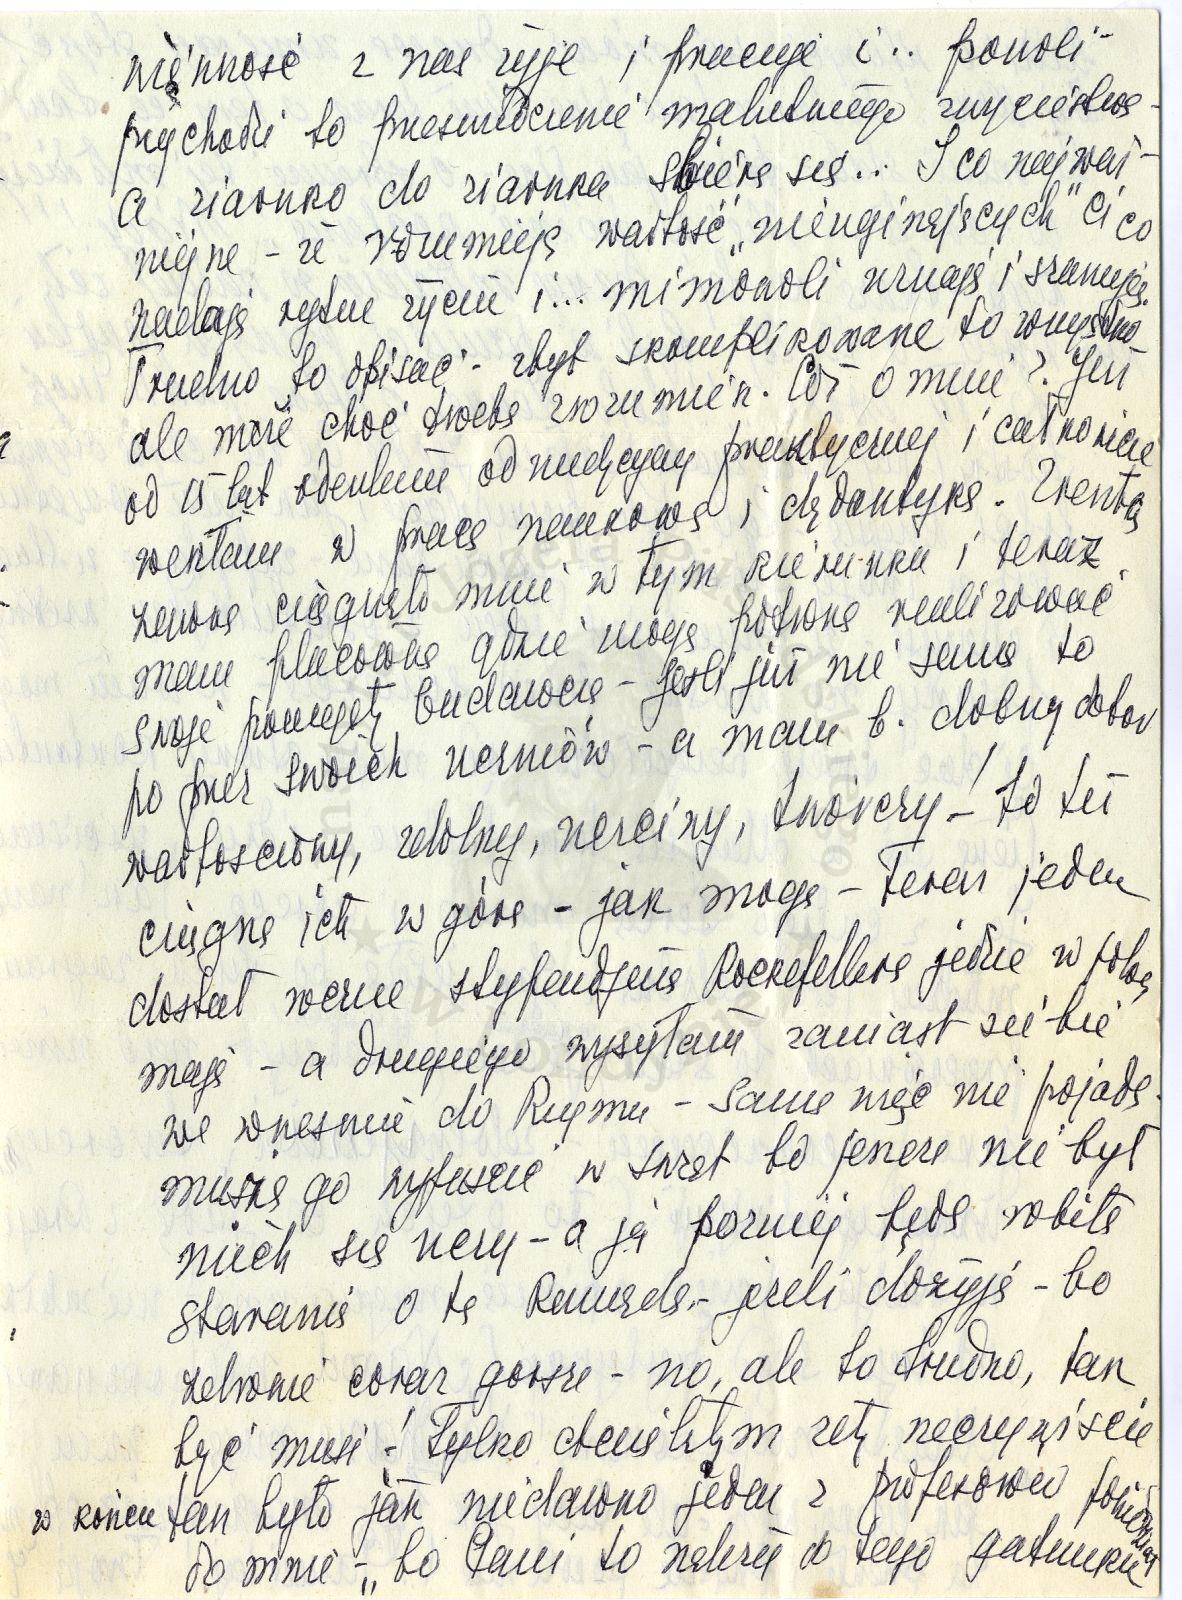 większość z nas żyje i pracuje i.. powoli-
przychodzi to przeświadczenie malutkiego zwycięstwa-
a ziarnko do ziarnka zbiera się.. I co najważ-
niejsze - że rozumieją wartość „nieuginających" Ci co
nadają rytm życiu i... mimowoli uznają i szanują.
Trudno to opisać - zbyt skomplikowane to wszystko
ale może choć trochę zrozumiesz. Cóż o mnie? Już
od 15 lat odeszłam od medycyny praktycznej i całkowicie
weszłam w pracę naukową i dydaktykę. Zresztą
zawsze ciągnęło mnie w tym kierunku i teraz
mam placówkę gdzie mogę potrosze realizować
swoje pomysły badawcze - jeśli już nie sama to
po przez swoich uczniów - a mam b. dobry dobór
wartościowy, zdolny, uczciwy, twórczy! - to też
ciągnę ich w górę - jak mogę - Teraz jeden
dostał roczne stypendjum Rockefellera jedzie w tobą
mają - a drugiego wysyłam zamiast siebie
we wrześniu do Rzymu - sama więc nie pojadę.
muszę go wypuścić w świat bo jeszcze nie był
niech się uczy - a ja poźniej będę robiła
starania o tę Kanadę - jeżeli dożyję - bo
zdrowie coraz gorsze - no, ale to trudno, tak
być musi -! Tylko chciałabym żeby rzeczywiście
w końcu tak było jak niedawno jeden z profesorów powiedział
do mnie - „bo Pani to należy do tego gatunku